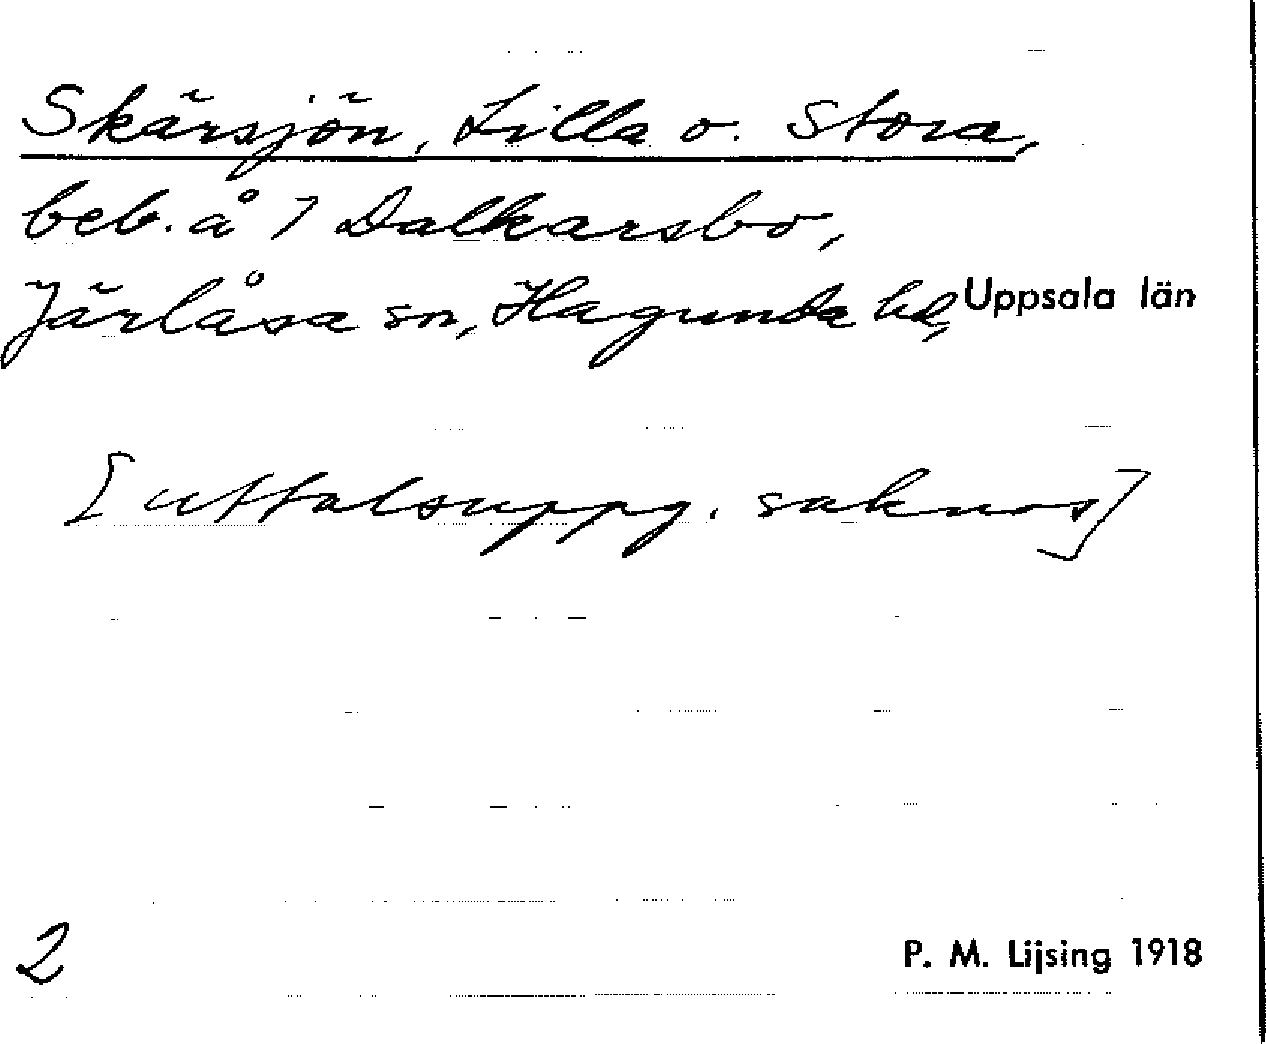 Skärsjön, Lilla o. Stora,
beb. å 7 Dalkarsbo,
Järlåsa sn, Hagunda hd, Uppsala län
[uttalsuppg. saknas]
2
P. M. Lijsing 1918